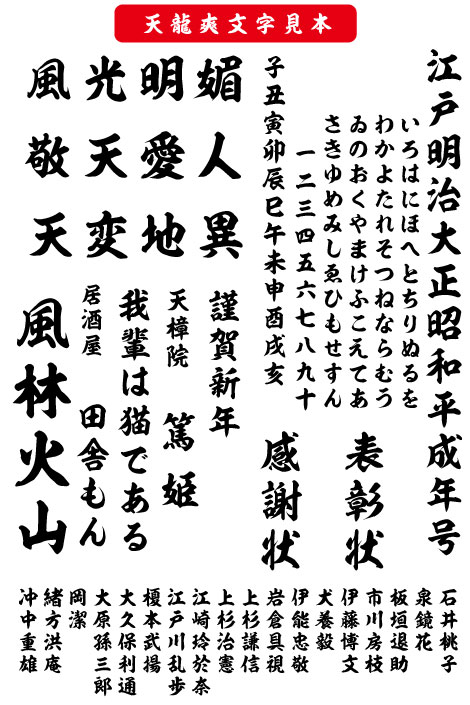 天龍爽文字見本
江戸明治大正昭和平成年号
いろはにほへとちりぬるを
わかよたれそつねならむう
ゐのおくやまけふこえてあ
さきゆめみしゑひもせすん
一二三四五六七八九十
子丑寅卯辰巳午未申酉戌亥
表彰状
感謝状
媚人異
明愛地
光天変
風敬天
謹賀新年
天樟院 篤姫
我輩は猫である
居酒屋 田舎もん
風林火山
石井桃子
泉鏡花
板垣退助
市川房枝
伊藤博文
犬養毅
伊能忠敬
岩倉具視
上杉謙信
上杉治憲
江崎玲於奈
江戸川乱歩
榎本武揚
大久保利通
大原孫三郎
岡潔
緒方洪庵
冲中重雄